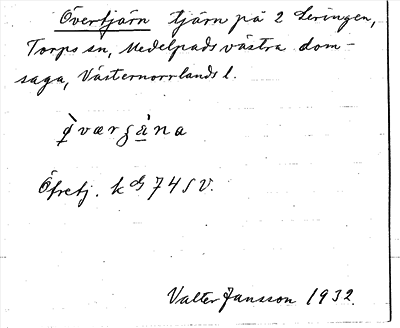 Övertjärn tjärn på 2 Leringen,
Torps sn, Medelpads västra dom-
saga, Västernorrlands l.
Öfretj. k 74 SV.
Valter Jansson 1932.